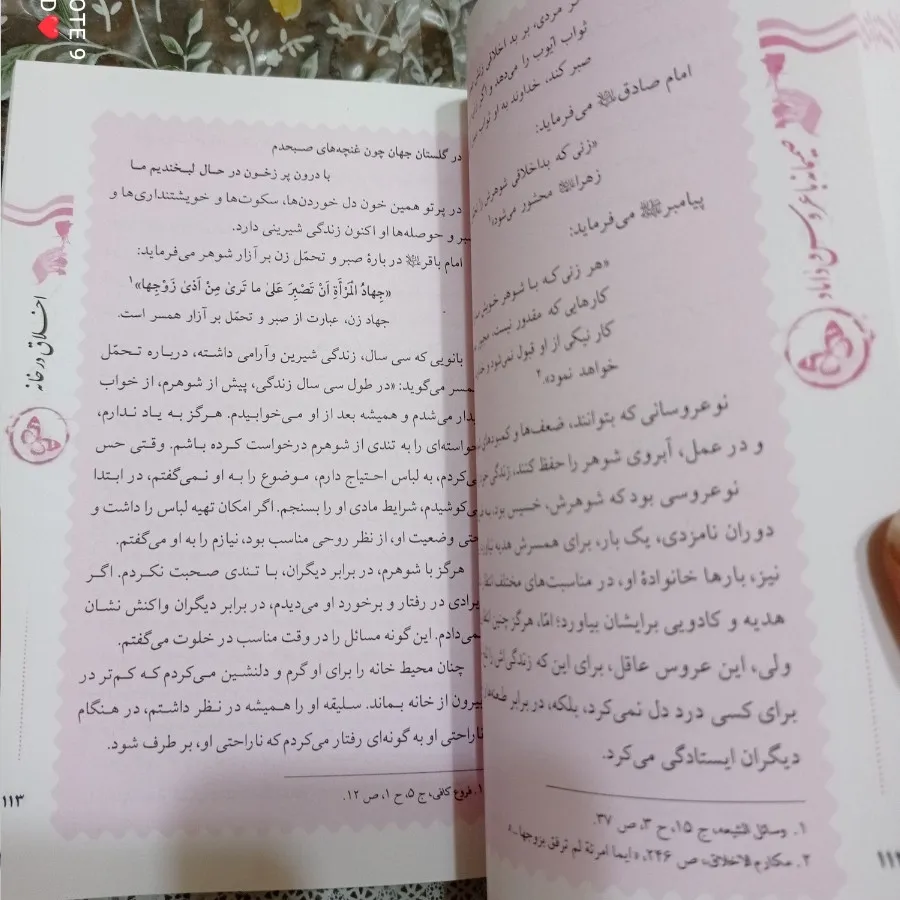 صمیمانه با عروس و داماد
مردی، بر بد اخلاقی زنش
ثواب ایوب را می‌دهد و اگر زنی
صبر کند، خداوند به او ثواب
امام صادق علیه السلام می‌فرماید:
«زنی که بداخلاقی شوهرش را تحمل
زهرا علیها السلام محشور می‌شود»۱
پیامبر صلی الله علیه و آله می‌فرماید:
«هر زنی که با شوهر خویش
کارهایی که مقدور نیست،
کار نیکی از او قبول نمی‌شود و
خواهد نمود».۲
نوعروسانی که بتوانند، ضعف‌ها و کمبودهای
و در عمل، آبروی شوهر را حفظ کنند، زندگی
نوعروسی بود که شوهرش، خسیس بود،
دوران نامزدی، یک بار، برای همسرش هدیه
نیز، بارها خانوادهٔ او، در مناسبت‌های مختلف
هدیه و کادویی برایشان بیاورد؛ امّا، هرگز چنین
ولی، این عروس عاقل، برای این که زندگی‌اش
برای کسی درد دل نمی‌کرد، بلکه، در برابر
دیگران ایستادگی می‌کرد.
۱. وسائل الشیعه، ج ۱۵، ح ۳، ص ۳۷.
۲. مکارم الاخلاق، ص ۲۴۶، «ایما امرئة لم ترفق بزوجها...»
اخلاق در خانه
در گلستان جهان چون غنچه‌های صبحدم
با درون پر زخون در حال لبخندیم ما
در پرتو همین خون دل خوردن‌ها، سکوت‌ها و خویشتنداری‌ها و
صبر و حوصله‌ها او اکنون زندگی شیرینی دارد.
امام باقر علیه السلام در بارهٔ صبر و تحمّل زن بر آزار شوهر می‌فرماید:
«جِهادُ المَرْأَةِ اَنْ تَصْبِرَ عَلیٰ ما تَریٰ مِنْ اَذیٰ زَوْجِها»۱
جهاد زن، عبارت از صبر و تحمّل بر آزار همسر است.
بانویی که سی سال، زندگی شیرین وآرامی داشته، درباره تحمّل
همسر می‌گوید: «در طول سی سال زندگی، پیش از شوهرم، از خواب
بیدار می‌شدم و همیشه بعد از او می‌خوابیدم. هرگز به یاد ندارم،
خواسته‌ای را به تندی از شوهرم درخواست کرده باشم. وقتی حس
می‌کردم، به لباس احتیاج دارم، موضوع را به او نمی‌گفتم، در ابتدا
می‌کوشیدم، شرایط مادی او را بسنجم. اگر امکان تهیه لباس را داشت و
حتی وضعیت او، از نظر روحی مناسب بود، نیازم را به او می‌گفتم.
هرگز با شوهرم، در برابر دیگران، با تندی صحبت نکردم. اگر
ایرادی در رفتار و برخورد او می‌دیدم، در برابر دیگران واکنش نشان
نمی‌دادم. این گونه مسائل را در وقت مناسب در خلوت می‌گفتم.
چنان محیط خانه را برای او گرم و دلنشین می‌کردم که کم‌تر در
بیرون از خانه بماند. سلیقه او را همیشه در نظر داشتم، در هنگام
ناراحتی او به گونه‌ای رفتار می‌کردم که ناراحتی او، بر طرف شود.
۱. فروع کافی، ج ۵، ح ۱، ص ۱۲.
۱۱۳